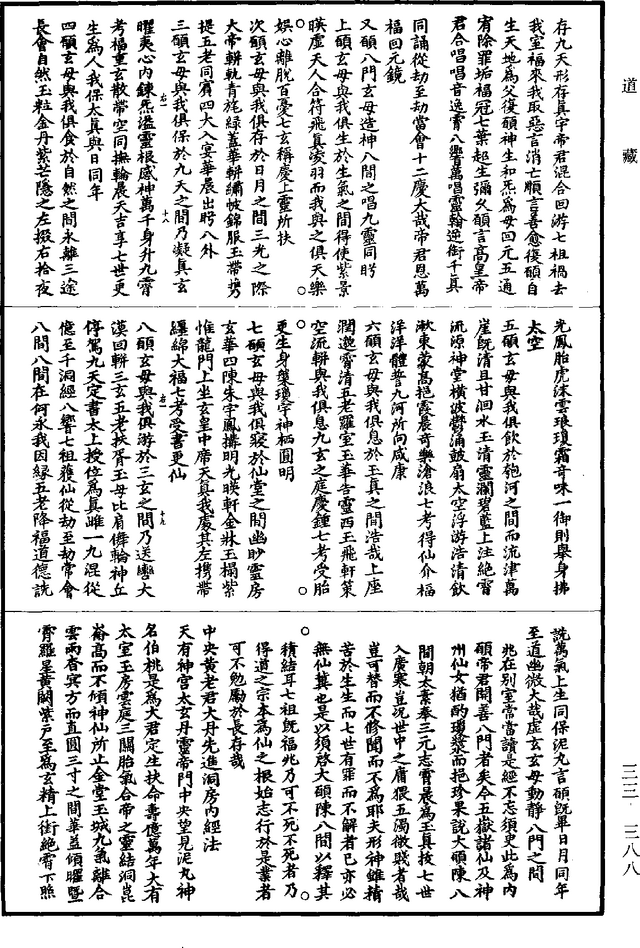 道藏
存九天形存真宇帝君混合回游七祖禍去
我室福來我取惡言消亡順言善愈復願自
生天地為父復願神生和炁為母四元五通
宥除罪垢福冠七葉起生彌久願言高皇帝
君合唱唱音逸霄八響萬唱靈翰逆銜千真
同誦從劫至劫當會十二慶大哉帝君恩萬
福回元鏡
又願八門玄母造神八間之唱九靈同眄
上願玄母與我俱生於生氣之間得使紫景
暎虛天人合符飛真凌羽而我與之俱天樂
娛心離脫百憂上玄稱慶上靈所扶
次願玄母與我俱存於日月之間三光之際
大帝軿軌青旄綠蓋華軿繡帔錦服玉帶攜
提五老同賓四大入宴華晨出眄八外
三願玄母與我俱保於九天之間乃凝真玄
曜夷心內鍊炁溢靈根感神萬千身升九霄
考福重玄散帶空同撫輪晨天吉享七世更
生為人我保太真與日同年
四願玄母與我俱食於自然之間永離三途
長會自然玉粒金丹紫芒隱之左掇右拾夜
光鳳胎虎沫雲琅瓊霜奇味一御則舉身拂
太空
五願玄母與我俱飲於匏河之間而流津萬
崖既清且甘洄水玉清靈瀾碧藍上注絕霄
流源神堂橫波鬱涌鼓扇太空浮游浩清飲
漱東蒙高挹霞晨奇樂滄浪七考得仙介福
洋洋體警九河所向咸康
六願玄母與我俱息於玉真之間浩哉上座
闊邈霄清五老羅室玉華吉靈西王飛軒策
空流軿與我俱息九玄之庭慶鍾七考受胎
更生身築瓊宇神栖圓明
七願玄母與我俱寢於仙堂之間幽眇靈房
玄華四陳朱宇鳳搆明光暎軒金牀玉榻紫
帷龍門上坐玄皇中帝天真我處其左携帶
纏綿大福七考受書更仙
八願玄母與我俱游於三玄之間乃送轡大
漢回軿三玄五老挾胥玉母比肩儛輪神丘
停駕九天定書太上授位為真雌一九混從
億至千洞經八響七祖獲仙從劫至劫常會
八間八間在何永我因緣五老降福道德詵
詵萬氣上生同保泥丸言願既畢日月同年
至道幽微大哉虛玄玄母動靜八門之間
兆在別室常當讀是經不忘須臾此為內
願帝君開善八門者矣今五嶽諸仙及神
州仙女猶酌瓊漿而挹珍果說大願陳八
間朝太素奉三元志霄晨為玉真拔七世
入廣寒豈況世中之庸猥五濁微賤者哉
豈可替而不修聞而不為耶夫形神雖精
苦於生生而七世有罪而不解者已亦必
無仙冀也是以須啓大願陳八間以釋其
積結耳七祖既福兆乃可不死不死者乃
得道之宗本為仙之根始志行於是業者
可不勉勵於長存哉
中央黃老君大丹先進洞房內經法
天有神宮太玄丹靈帝門中央望見泥丸神
名伯桃是為大君定生扶命壽億萬年大有
太室玉房雲庭三關胎氣合帝之靈結洞崑
崙高而不傾神仙所止金堂玉城九氣離合
雲兩沓冥方而直圓三寸之間華蓋傾曜暨
霄羅星黃闕紫戶至為玄精上銜絕霄下照
三三·三八八